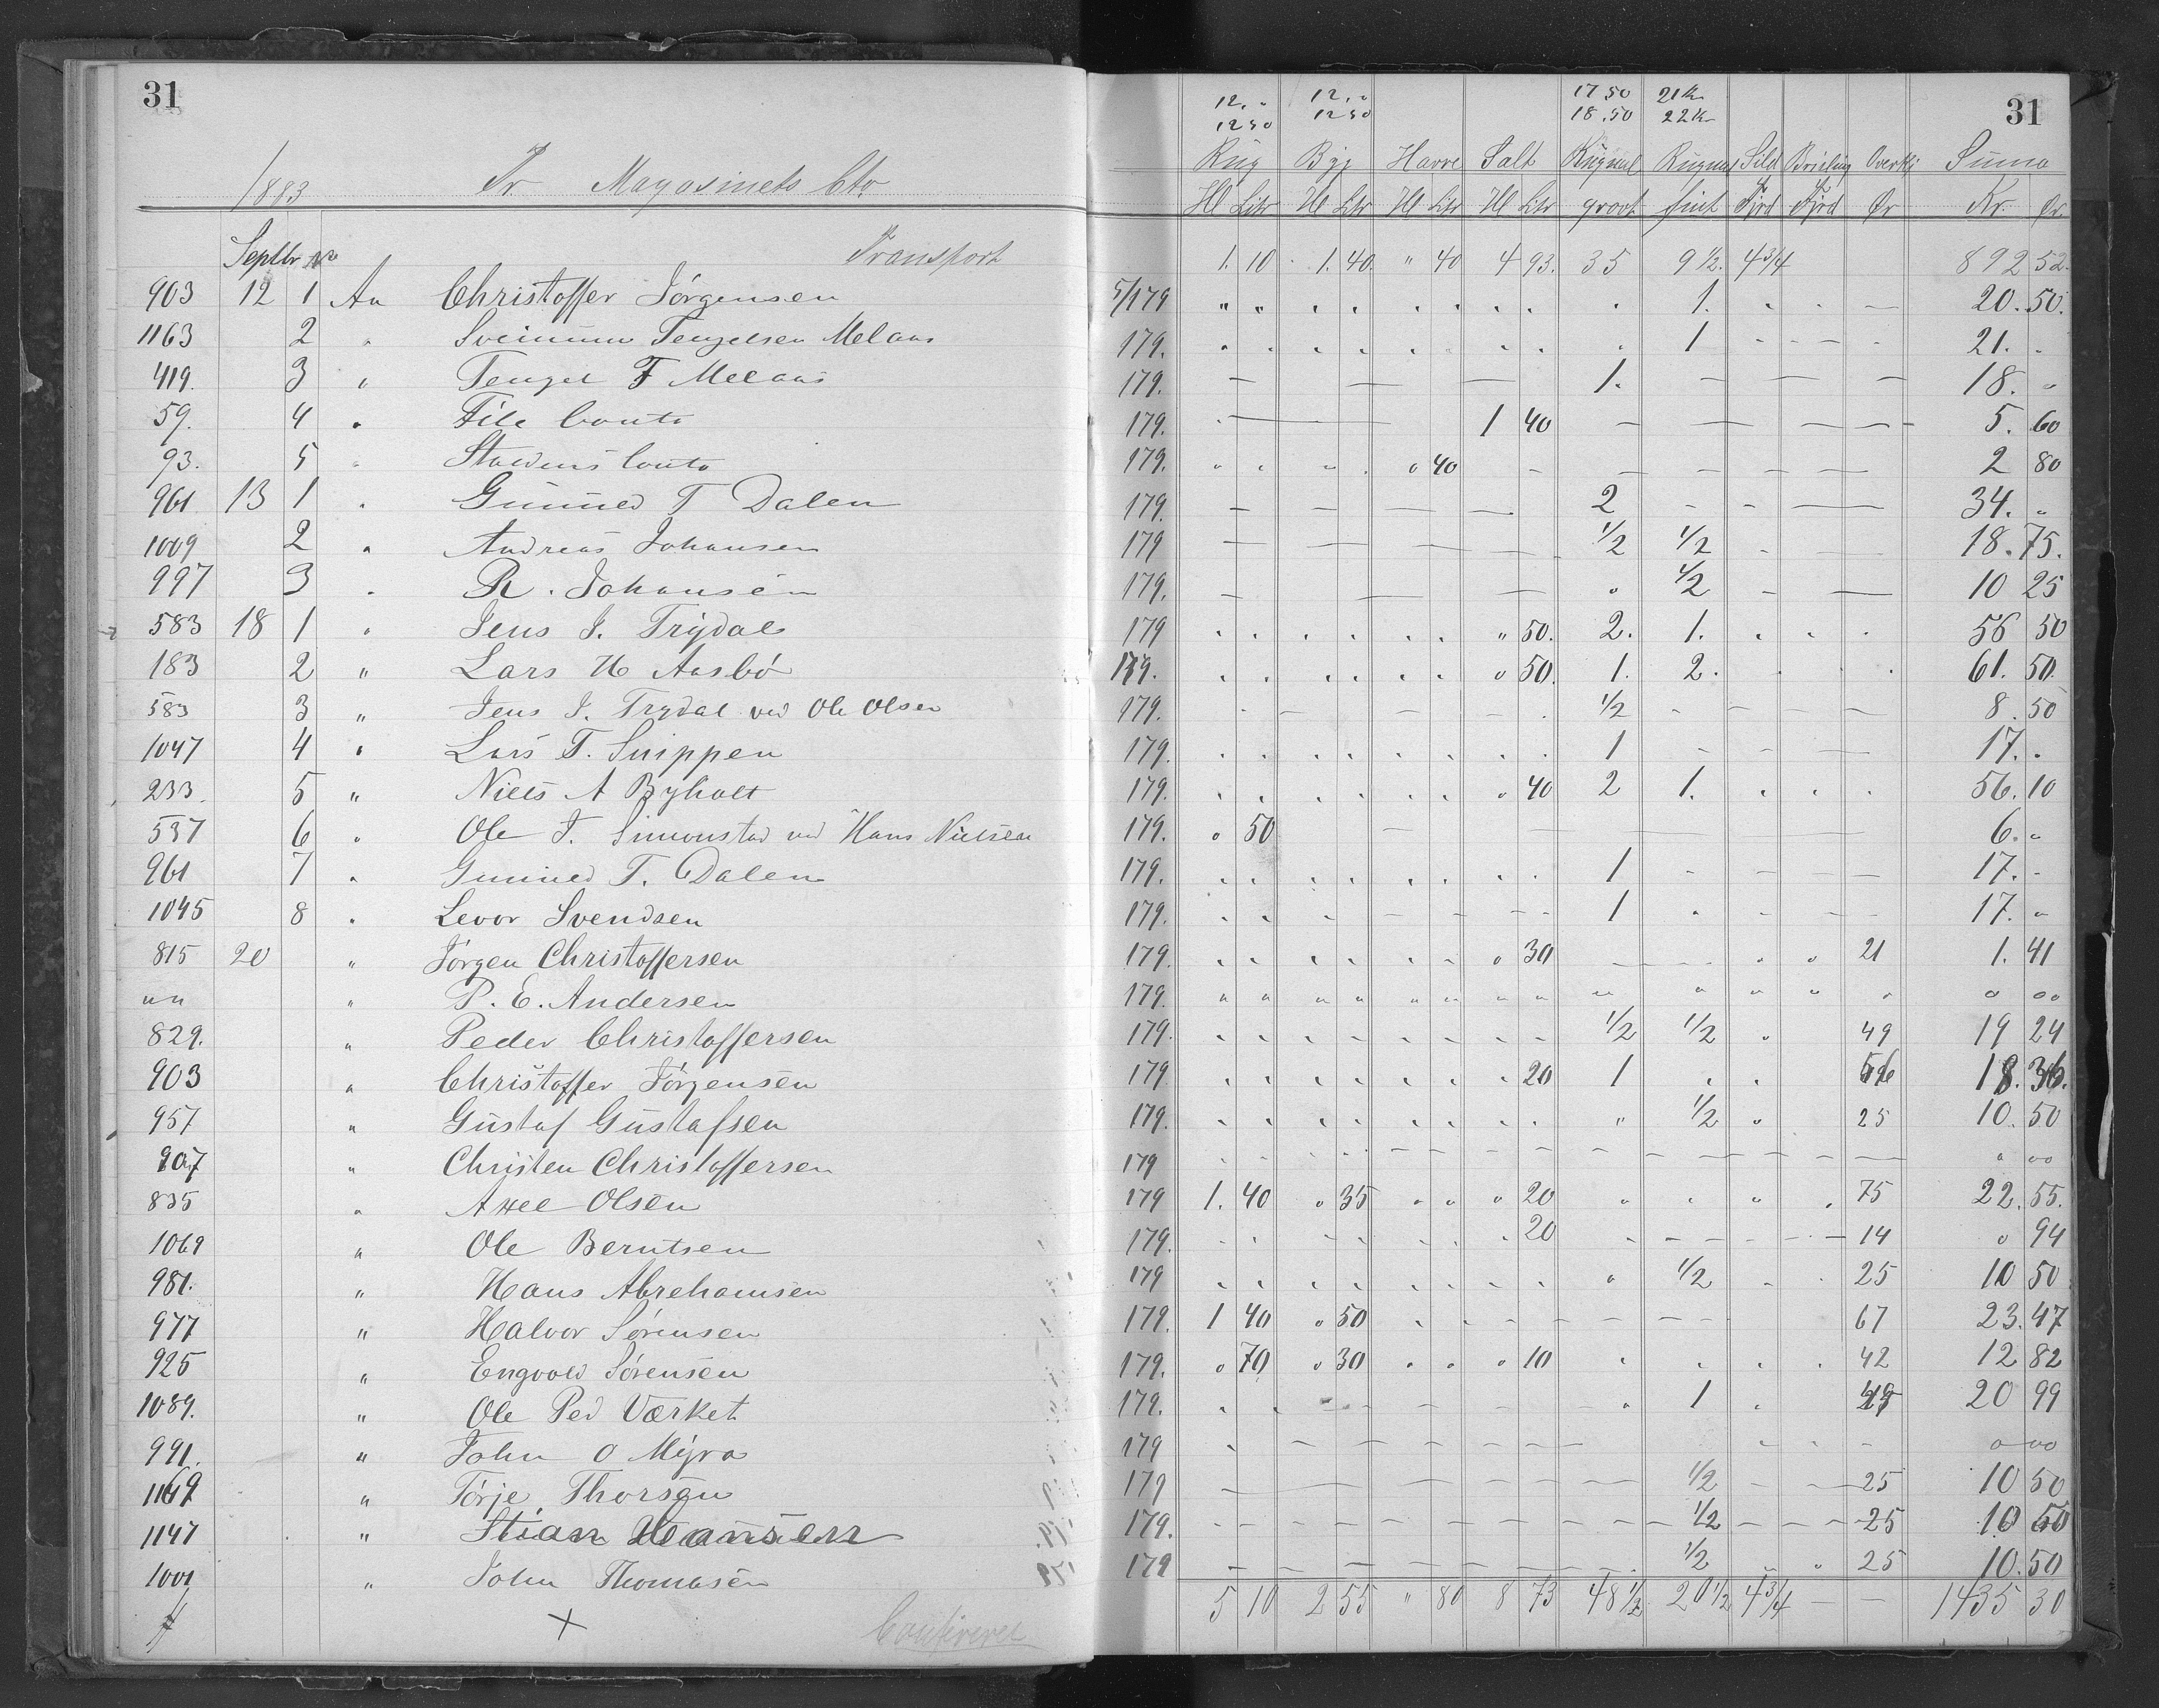 31
12. " 12. " 17 50 21 Kr 31
12 50 12 50 18.50 22 Kr
1883 Pr Magasinets Cto Rug Byg Havre Salt Rugmel Rugmel Sild Brisling Overkj Suma
Hl Litr Hl Ltr Hl Ltr Hl Ltr groot fint Fjrd Fjrd Ør Kr. Ør
Septbr No Transport 1. 10 1. 40. " 40 4 93. 35 9 1/2. 4 3/4 892 52.
903 12 1 An Christoffer Jörgensen 5/179 1. 20. 50.
1163 2 " Sveinum Tengelsen Melaas 179. 1 21. "
419. 3 " Tengel F Melaas 179. 1. 18. "
59. 4 " File Conto 179. 1 40 5. 60
93. 5 " Staldens Conto 179. " 40 2 80
961 13 1 " Gunned T Dalen 179. 2 34. "
1009 2 " Andreas Johansen 179 1/2 1/2 18. 75.
997 3 " R. Johansen 179. 1/2 10 25
583 18 1 " Jens J. Trydal 179 " 50. 2. 1. 56 50
183 2 " Lars H Aasbö 179. " 50. 1. 2. 61. 50.
583 3 " Jens J. Trydal ved Ole Olsen 179. 1/2 8. 50
1047 4 " Lars T. Snippen 179. 1 17. "
233. 5 " Niels A Byholt 179. " 40 2 1. 56. 10
537 6 " Ole T. Simonstad ved Hans Nielsen 179. " 50 6. "
961 7 " Gunned T. Dalen 179. 1 17. -
1045 8 " Levor Svendsen 179. 1 17. "
815 20 " Jörgen Christoffersen 179. " 30 21 1. 41
" " " P. E. Andersen 179. " " "
829. " Peder Christoffersen 179. 1/2 1/2 49 19 24
903 " Christoffer Jörgensen 179 " 20 1 56 18. 36.
957 " Gustaf Gustafsen 179. " 1/2 25 10. 50
907 " Christen Christoffersen 179 " " "
835 " Axel Olsen 179 1. 40 " 35 " 20 75 22. 55.
1069 " Ole Berntsen 179. 20 14 " 94
981. " Hans Abrehamsen 179 1/2 25 10 50
977 " Halvor Sörensen 179. 1 40 " 50 67 23. 47
925 " Engvold Sörensen 179. " 70 " 30 " 10 42 12 82
1089. " Ole Ped Værket 179. 1 49 20 99
991. " John O Myra 179 " " "
1169 " Törje Thorsen 179 1/2 25 10 50
1147 " Stian Hansen 179. 1/2 25 10 50
1001 " John Thomasen 179 1/2 25 10. 50
5 10 2 55 " 80 8 73 48 1/2 20 1/2 4 3/4 — — 1435 30
Confereret